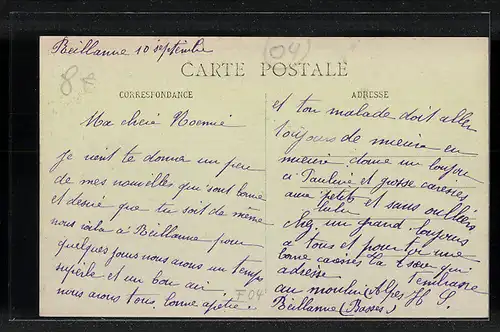 Beillanne 10 septembre
(04)
8
CARTE POSTALE
CORRESPONDANCE
Ma cheié Noemie
Je vient te donné un peu
de mes nouvelles qui sont bonne
et desiré que tu soit de meme
nous voila à Beillanne pour
quelques jours nous avons un temps
superbe et un bon air.
nous avons tous, bonne apetit.
F 04
ADRESSE
et ton malade doit aller
toujours de mieux en
mieux donne un
a Pauline et grosse caresses
aux petits et sans oublier
lulu
chez un grand
a tous et pour toi une
bonne caresses Ta sœur qui
adresse t'embrasse
au moulin (Alpes H S.
Beillanne (Basses)